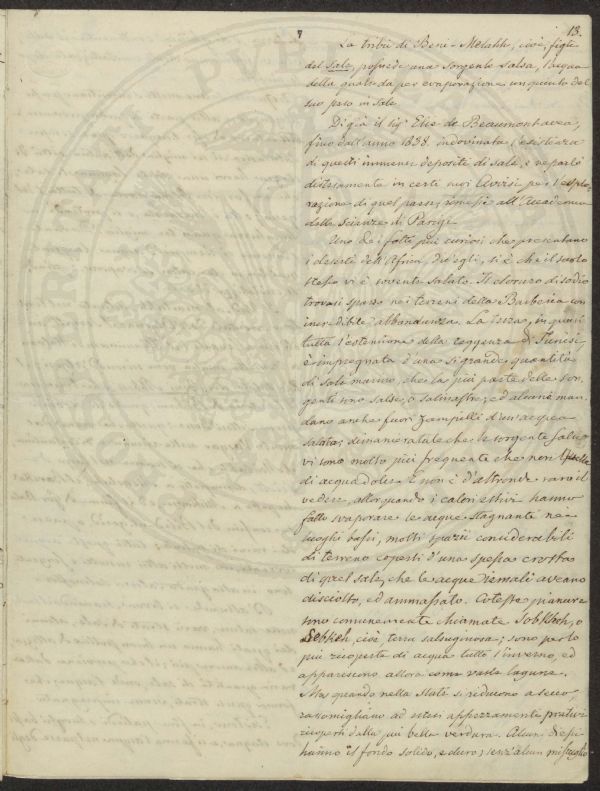 7
13.
La tribù di Beni-Melahh, cioè, figli
del Sale, possiede una sorgente salsa, l'acqua
della quale da per evaporazione un quinto del
suo peso in sale.
Di già il sig.r Elie de Beaumont avea,
fino dall'anno 1838. indovinata l'esistenza
di questi immensi depositi di sale, e ne parlò
distesamente in certi suoi Avvisi per l'esplo-
razione di quel paese, rimessi all'Accademia
delle Scienze di Parigi.
Uno dei fatti più curiosi che presentano
i deserti dell'Africa, dic'egli, si è che il suolo
stesso vi è sovente salato. Il cloruro di sodio
trovasi sparso nei terreni della Barberia con
incredibile abbondanza. La terra, in quasi
tutta l'estensione della reggenza di Tunisi,
è impregnata d'una sì grande quantità
di sale marino, che la più parte delle sor-
genti sono salse, o salmastre; ed alcune man-
dano anche fuori zampilli d'un'acqua
salata; dimanieratale che le sorgenti salse
vi sono molto più frequente che non quelle
di acqua dolce. E non è d'altronde raro il
vedere, allorquando i calori estivi hanno
fatto svaporare le acque stagnanti nei
luoghi bassi, molti spazii considerabili
di terreno coperti d'una spessa crosta
di quel sale, che le acque iemali aveano
disciolto, ed ammassato. Coteste pianure
sono comunemente chiamate Sobkheh, o
Sebkeh, cioè terra salsuginosa; sono per lo
più ricoperte di acqua tutto l'inverno, ed
appariscono allora come vaste lagune.
Ma quando nella state si riducono a secco,
rassomigliano ad estesi appezzamenti prativi
ricoperti dalla più bella verdura. Alcuni di essi
hanno il fondo solido, e duro; senz'alcun miscuglio